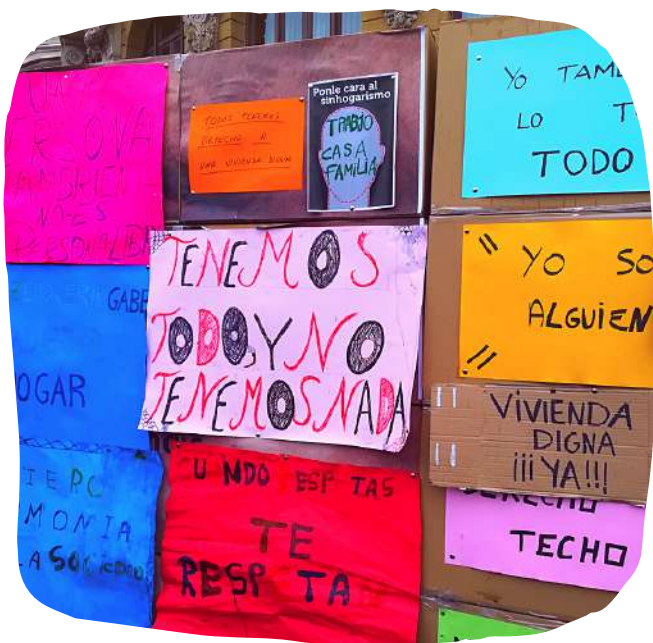 TODOS TENEMOS
DERECHO A
UNA VIVIENDA DIGNA
Ponle cara al
sinhogarismo
TRABJO
CASA
FAMILIA
YO TAM
LO T
TODO
TENEMOS
TODO, Y NO
TENEMOS NADA
YO SO
ALGUiEN
GABE
OGAR
VIVIENDA
DIGNA
¡¡¡YA!!!
DERECHO
TECHO
IERO
MONIA
LA SOCIEDAD
U NDO ESP TAS
TE
RESP TA